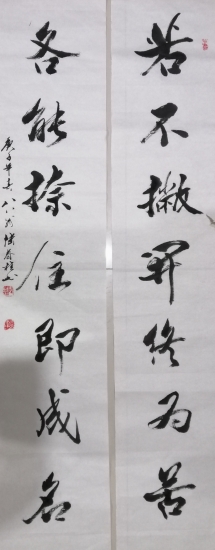 若不撇開终为苦
各能捺住即成名
庚子年春八八